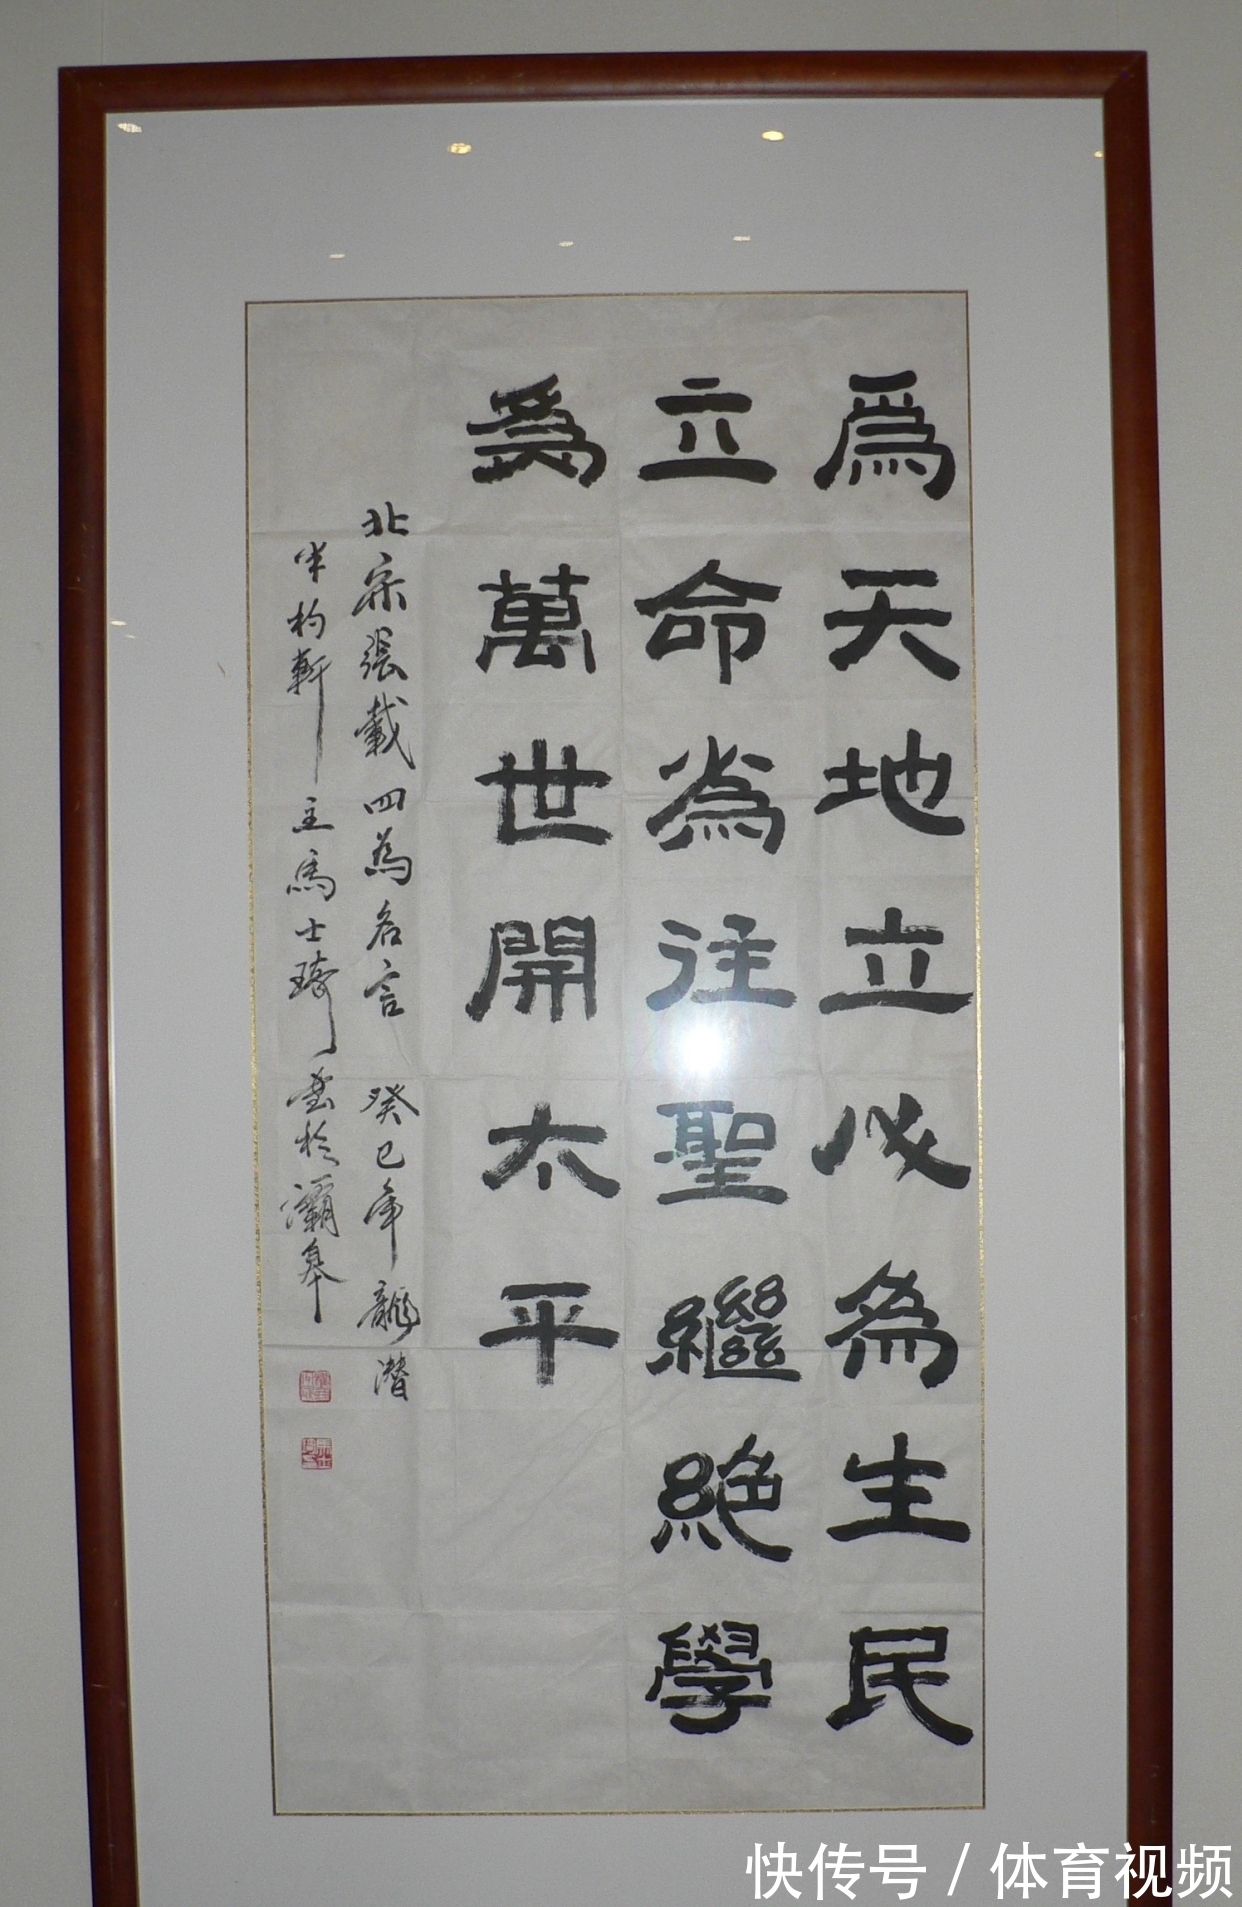 爲天地立心爲生民
立命爲往聖繼絶學
爲萬世開太平
北宋張載四爲名言 癸巳年龍潛
半杓軒主馬士琦書於灞皋
快传号 / 体育视频